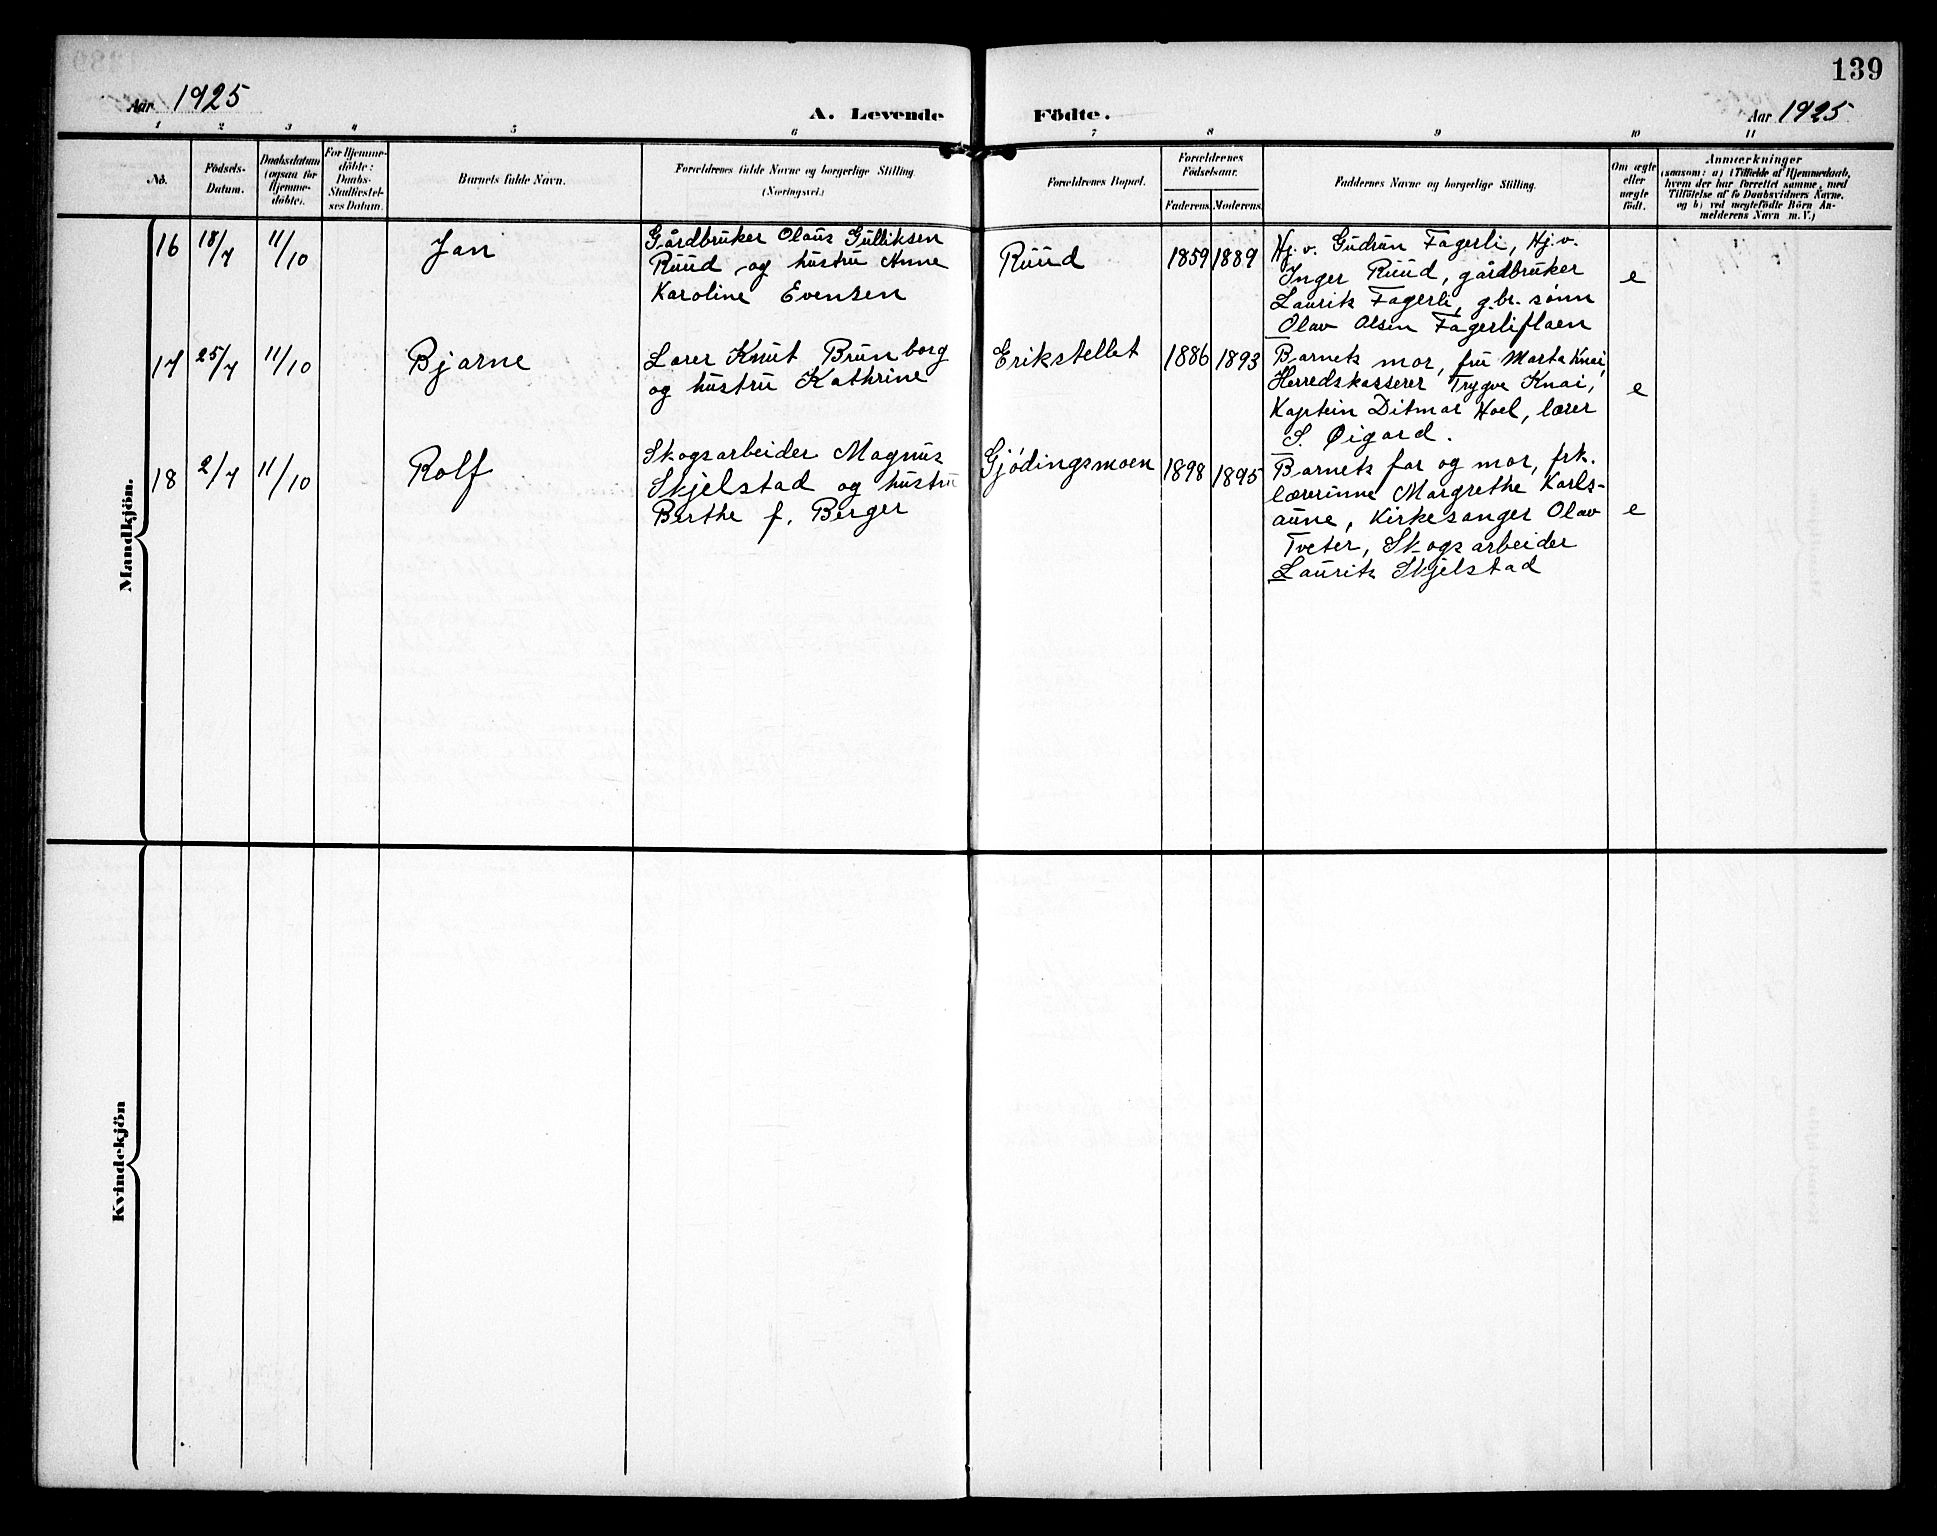 139
Aar 1925
A. Levende Födte.
Aar 1925
1 2 3 4 5 6 7 8 9 10 11
No.
Födsels-
Datum.
Daabsdatum
(ogsaa for
Hjemme-
döbte).
For Hjemme-
döbte:
Daabs-
Stadfæstel-
ses Datum.
Barnets fulde Navn.
Forældrenes fulde Navne og borgerlige Stilling
(Næringsvei.)
Forældrenes Bopæl.
Forældrenes
Födselsaar.
Faderens. Moderens.
Faddernes Navne og borgerlige Stilling.
Om ægte
eller
uægte
födt.
Anmærkninger
(saasom: a) i Tilfælde af Hjemmedaab,
hvem der har forrettet samme, med
Tilföielse af to Daabsvidners Navne,
og b) ved uægtefödte Börn An-
melderens Navn m. V.)
Mandkjön.
16 18/7 11/10 Jan
Gårdbruker Olaus Gulliksen
Ruud og hustru Anne
Karoline Evensen
Ruud 1859 1889
Hj.v. Gudrun Fagerli, Hj.v.
Inger Ruud, gårdbruker
Laurik Fagerli, g.br. sønn
Olav Olsen Fagerliflaen
e
17 25/7 11/10 Bjarne
Lærer Knut Brunborg
og hustru Kathrine
Erikstellet 1886 1893
Barnets mor, fru Marta Knai,
Herredskasserer Trygve Knai,
Kaptein Ditmar Hoel, lærer
S. Øigard.
e
18 2/7 11/10 Rolf
Skogsarbeider Magnus
Skjelstad og hustru
Berthe f. Berger
Gjödingsmoen 1898 1895
Barnets far og mor, frk.
lærerinne Margrethe Karls-
aune, Kirkesanger Olav
Tveter, Skogsarbeider
Laurits Skjelstad
e
Kvindekjön